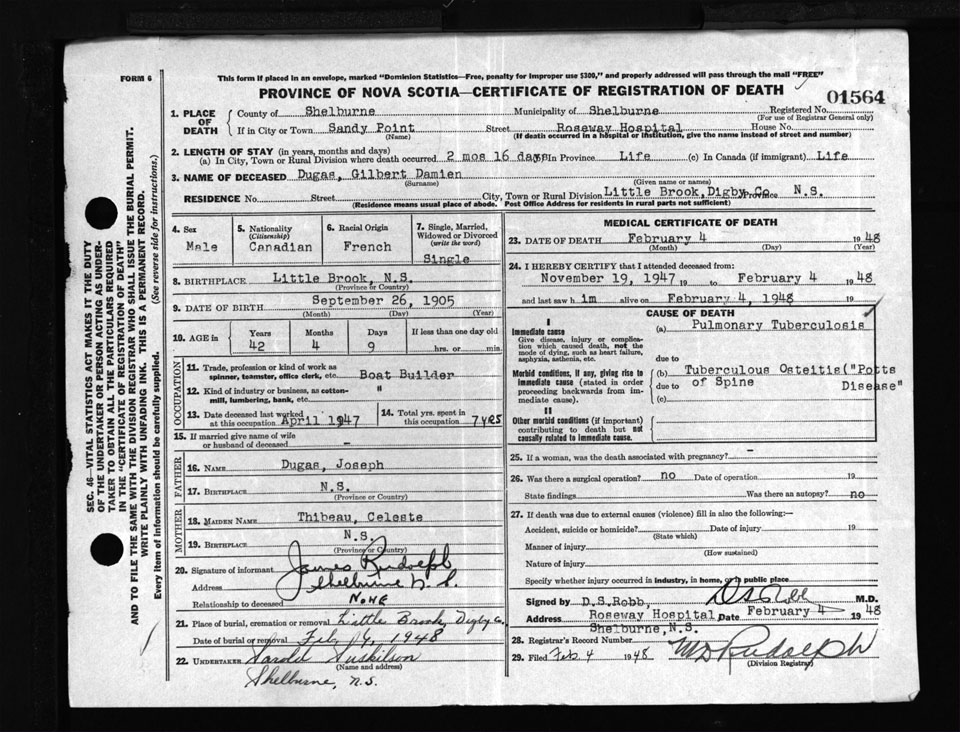 FORM 6
This form if placed in an envelope, marked "Dominion Statistics—Free, penalty for improper use $300," and properly addressed will pass through the mail "FREE"
PROVINCE OF NOVA SCOTIA—CERTIFICATE OF REGISTRATION OF DEATH
01564
1. PLACE OF DEATH County of Shelburne Municipality of Shelburne Registered No.
(For use of Registrar General only)
If in City or Town Sandy Point Street Roseway Hospital House No.
(Name) (If death occurred in a hospital or institution, give the name instead of street and number)
2. LENGTH OF STAY (in years, months and days)
(a) In City, Town or Rural Division where death occurred 2 mos 16 days In Province Life (c) In Canada (if immigrant) Life
3. NAME OF DECEASED Dugas, Gilbert Damien
(Surname) (Given name or names)
RESIDENCE No. Street City, Town or Rural Division Little Brook, Digby Co Province N.S.
(Residence means usual place of abode. Post Office Address for residents in rural parts not sufficient)
4. Sex
Male
5. Nationality
(Citizenship)
Canadian
6. Racial Origin
French
7. Single, Married, Widowed or Divorced
(write the word)
Single
8. BIRTHPLACE Little Brook, N.S.
(Province or Country)
9. DATE OF BIRTH September 26, 1905
(Month) (Day) (Year)
10. AGE in Years Months Days If less than one day old
42 4 9 hrs. or min.
OCCUPATION
11. Trade, profession or kind of work as spinner, teamster, office clerk, etc. Boat Builder
12. Kind of industry or business, as cotton-mill, lumbering, bank, etc. "
13. Date deceased last worked at this occupation April 1947
14. Total yrs. spent in this occupation 7 yrs
15. If married give name of wife or husband of deceased -
FATHER
16. NAME Dugas, Joseph
17. BIRTHPLACE N.S.
(Province or Country)
MOTHER
18. MAIDEN NAME Thibeau, Celeste
19. BIRTHPLACE N.S.
(Province or Country)
20. Signature of informant James Rudolph
Address Shelburne N.S.
Relationship to deceased None
21. Place of burial, cremation or removal Little Brook, Digby Co.
Date of burial or removal Feb. 1948
22. UNDERTAKER
(Name and address)
Shelburne, N.S.
MEDICAL CERTIFICATE OF DEATH
23. DATE OF DEATH February 4 1948
(Month) (Day) (Year)
24. I HEREBY CERTIFY that I attended deceased from:
November 19, 1947 19 to February 4 1948
and last saw him alive on February 4, 1948 19
CAUSE OF DEATH
I
Immediate cause
Give disease, injury or complication which caused death, not the mode of dying, such as heart failure, asphyxia, asthenia, etc.
(a) Pulmonary Tuberculosis
due to
Morbid conditions, if any, giving rise to immediate cause (stated in order proceeding backwards from immediate cause).
(b) Tuberculous Osteitis("Potts
due to of Spine Disease"
(c)
II
Other morbid conditions (if important) contributing to death but not causally related to immediate cause.
25. If a woman, was the death associated with pregnancy? -
26. Was there a surgical operation? no Date of operation 19
State findings Was there an autopsy? no
27. If death was due to external causes (violence) fill in also the following:—
Accident, suicide or homicide? Date of injury 19
(State which)
Manner of injury
(How sustained)
Nature of injury
Specify whether injury occurred in industry, in home, or in public place
Signed by D.S.Robb, DS Robb M.D.
Address Roseway Hospital, Date February 4 1948
Shelburne, N.S.
28. Registrar's Record Number
29. Filed Feb. 4 1948 Rudolph
(Division Registrar)
SEC. 46—VITAL STATISTICS ACT MAKES IT THE DUTY
OF THE UNDERTAKER OR PERSON ACTING AS UNDER-
TAKER TO OBTAIN ALL THE PARTICULARS REQUIRED
IN THE "CERTIFICATE OF REGISTRATION OF DEATH"
AND TO FILE THE SAME WITH THE DIVISION REGISTRAR WHO SHALL ISSUE THE BURIAL PERMIT.
WRITE PLAINLY WITH UNFADING INK. THIS IS A PERMANENT RECORD.
Every item of information should be carefully supplied. (See reverse side for instructions.)